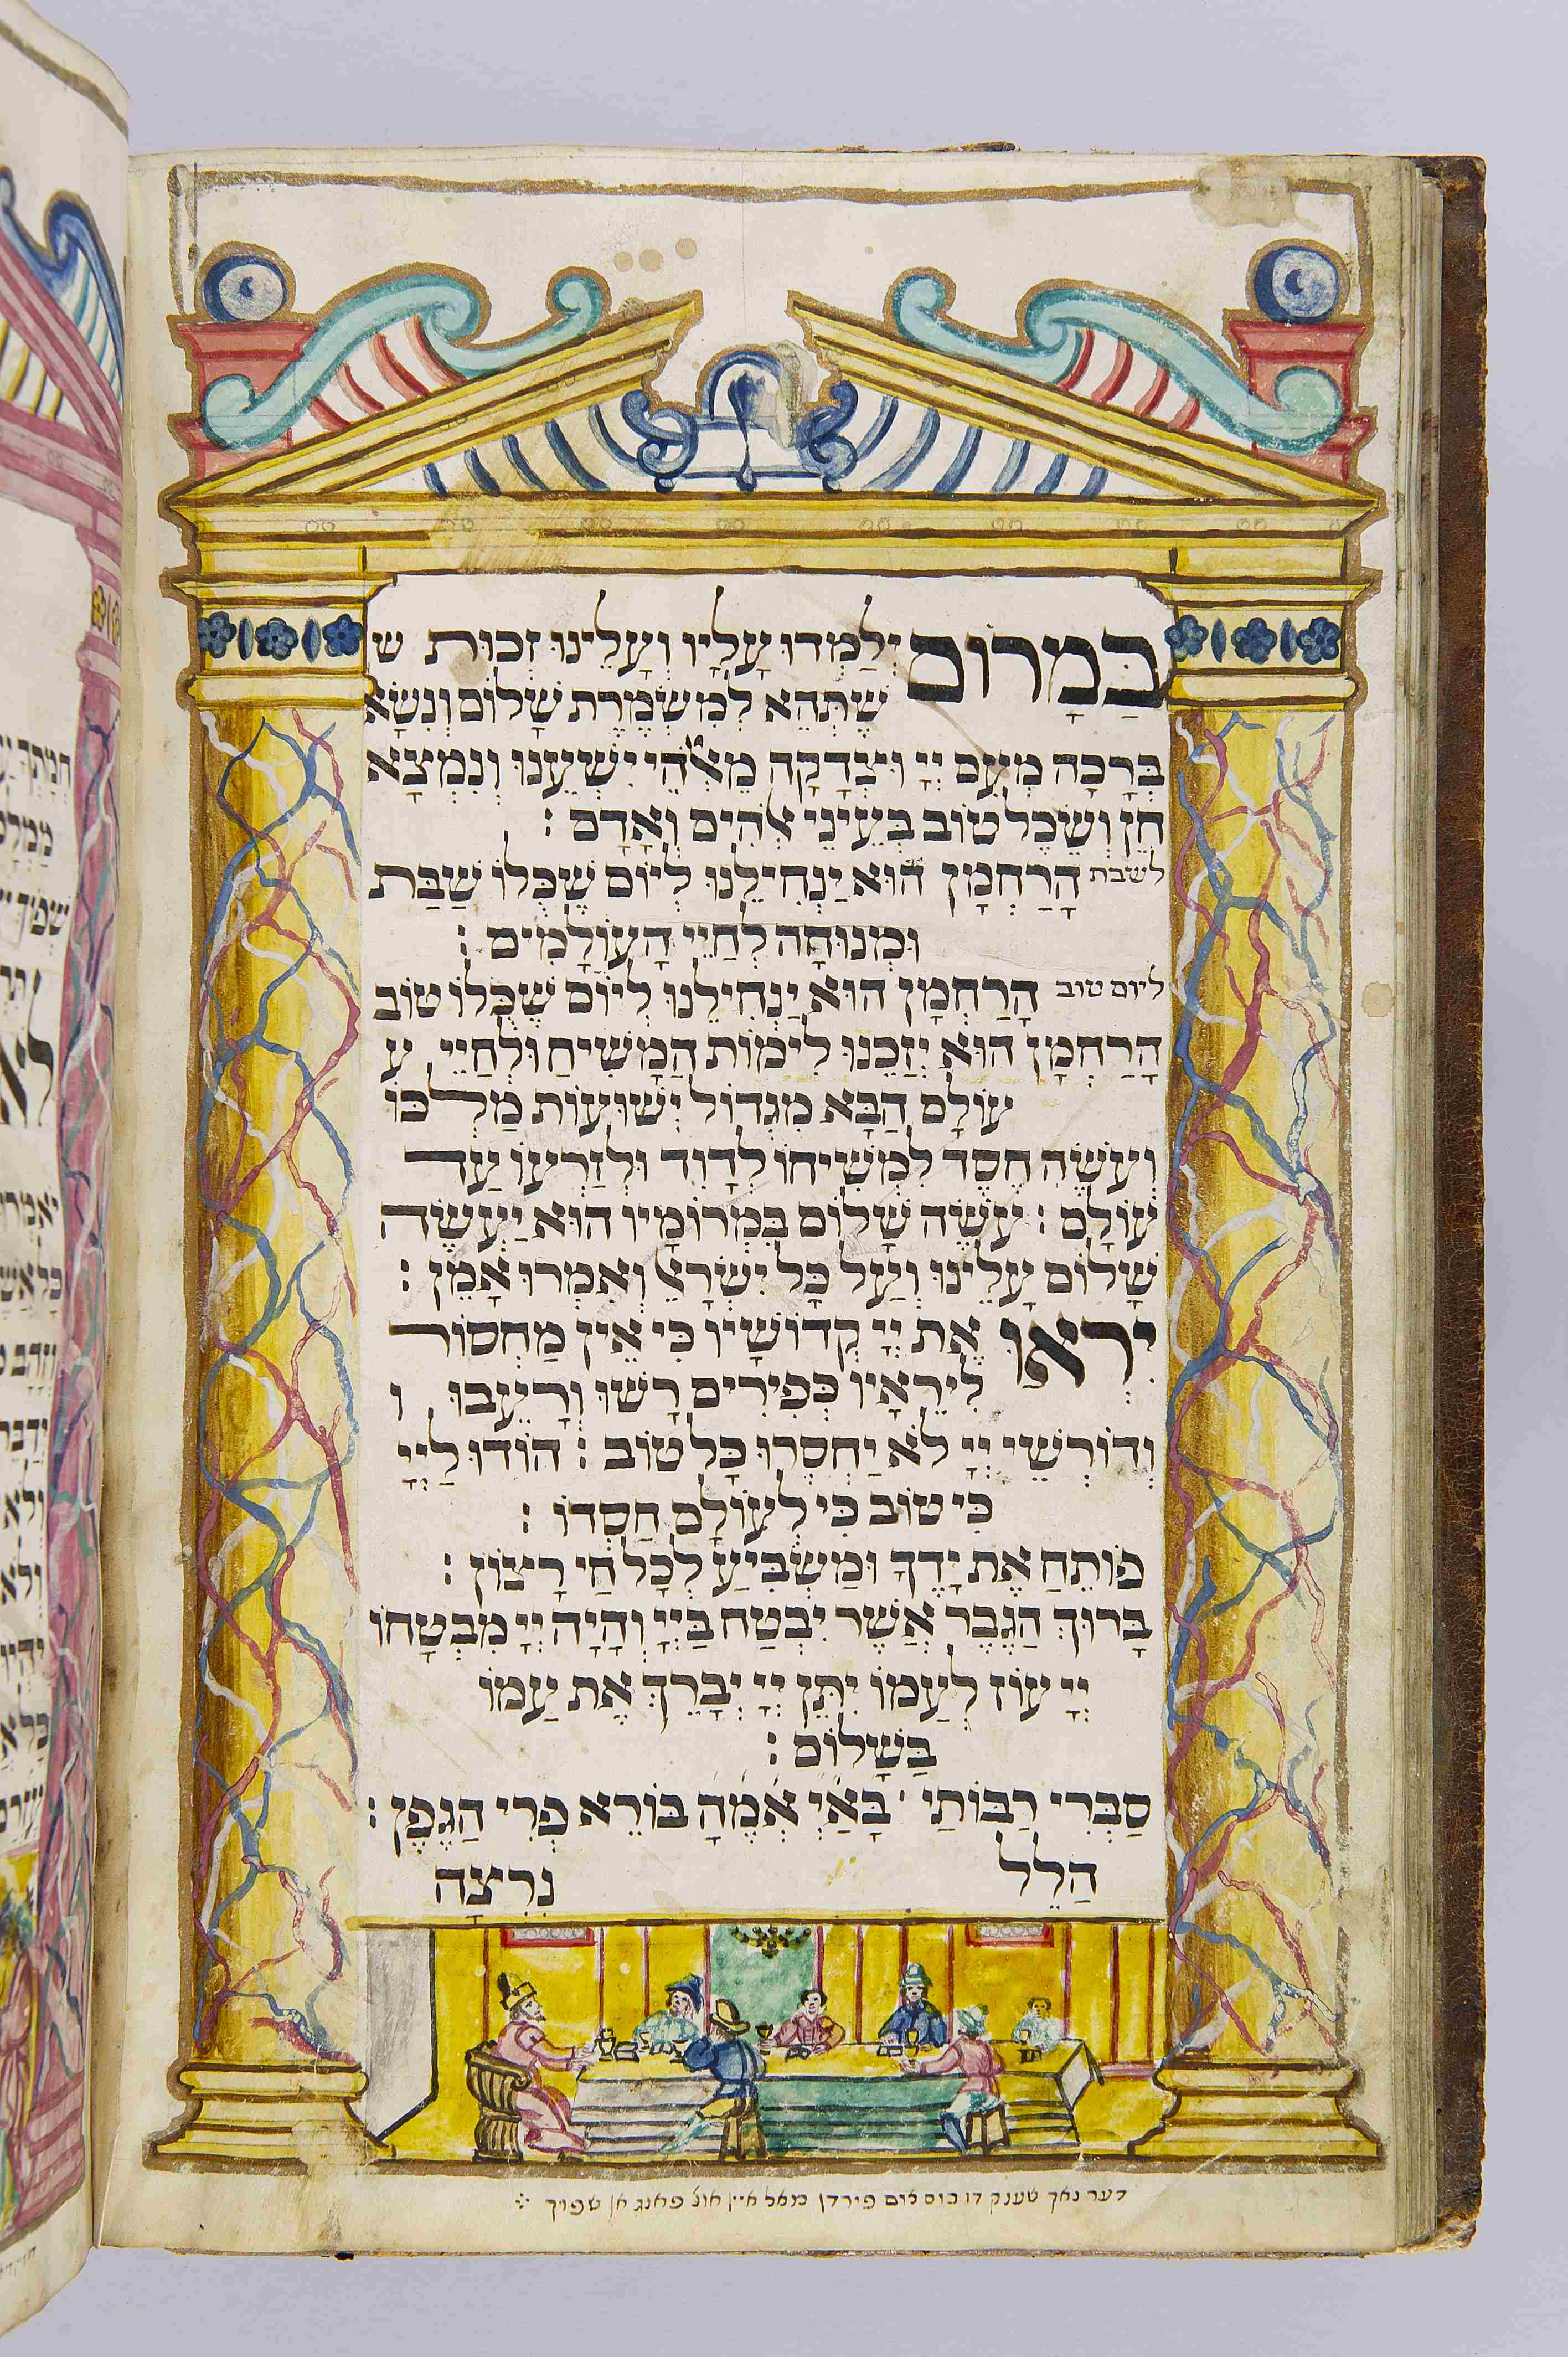 בַּמָרוֹם יְלַמְדוּ עָלָיו וְעָלֵינוּ זְכוּת ש
שֶׁתְּהֵא לְמִשְׁמֶרֶת שָׁלוֹם וְנִשָּׂא
בְּרָכָה מֵעִם יְיָ וּצְדָקָה מֵאֱלֹהֵי יִשְׁעֵנוּ וְנִמְצָא
חֵן וְשֵׂכֶל טוֹב בְּעֵינֵי אֱלֹהִים וְאָדָם :
לשבת הָרַחְמָן הוּא יַנְחִילֵנוּ לְיוֹם שֶׁכֻּלּוֹ שַׁבָּת
וּמְנוּחָה לְחַיֵּי הָעוֹלָמִים :
ליום טוב הָרַחְמָן הוּא יַנְחִילֵנוּ לְיוֹם שֶׁכֻּלּוֹ טוֹב
הָרַחְמָן הוּא יְזַכֵּנוּ לִימוֹת הַמָּשִׁיחַ וּלְחַיֵּי ע
עוֹלָם הַבָּא מִגְדּוֹל יְשׁוּעוֹת מַלְכּוֹ
וְעֹשֶׂה חֶסֶד לִמְשִׁיחוֹ לְדָוִד וּלְזַרְעוֹ עַד
עוֹלָם : עֹשֶׂה שָׁלוֹם בִּמְרוֹמָיו הוּא יַעֲשֶׂה
שָׁלוֹם עָלֵינוּ וְעַל כָּל יִשְׂרָאֵל וְאִמְרוּ אָמֵן :
יְראוּ אֶת יְיָ קְדוֹשָׁיו כִּי אֵין מַחְסוֹר
לִירֵאָיו כְּפִירִים רָשׁוּ וְרָעֵבוּ ו
וְדוֹרְשֵׁי יְיָ לֹא יַחְסְרוּ כָּל טוֹב : הוֹדוּ לַיְיָ
כִּי טוֹב כִּי לְעוֹלָם חַסְדּוֹ :
פּוֹתֵחַ אֶת יָדֶךָ וּמַשְׂבִּיעַ לְכָל חַי רָצוֹן :
בָּרוּךְ הַגֶּבֶר אֲשֶׁר יִבְטַח בַּיְיָ וְהָיָה יְיָ מִבְטַחוֹ
יְיָ עוֹז לְעַמּוֹ יִתֵּן יְיָ יְבָרֵךְ אֶת עַמּוֹ
בַּשָּׁלוֹם :
סַבְרִי רַבּוֹתַי ' בָּאַיְ אֱמֶהָ בּוֹרֵא פְּרִי הַגֶּפֶן :
הַלֵל נִרְצָה
דער נאך שענק דו כוס צום פירדן מאל איין אונ' פאנג אן שפוך